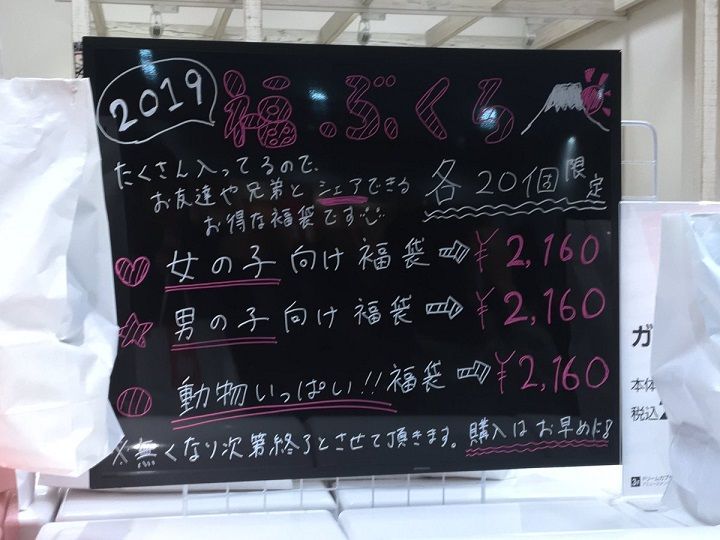 2019 福ぶくろ
たくさん入ってるので、
お友達や兄弟と シェアできる
お得な福袋です
各20個限定
女の子向け福袋⇨¥2,160
男の子向け福袋⇨¥2,160
動物いっぱい!!福袋⇨¥2,160
※無くなり次第終了とさせて頂きます。購入はお早めに
ガ
本体
税込